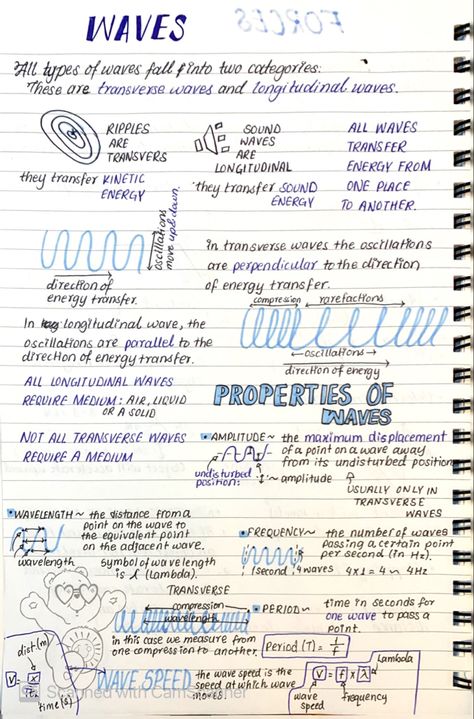 WAVES
FORCES
All types of waves fall into two categories:
These are transverse waves and longitudinal waves.
RIPPLES
ARE
TRANSVERS
they transfer KINETIC
ENERGY
SOUND
WAVES
ARE
LONGITUDINAL
they transfer SOUND
ENERGY
ALL WAVES
TRANSFER
ENERGY FROM
ONE PLACE
TO ANOTHER.
oscillations
move up & down.
direction of
energy transfer.
in transverse waves the oscillations
are perpendicular to the direction
of energy transfer.
In longitudinal wave, the
oscillations are parallel to the
direction of energy transfer.
compression rarefactions
oscillations
direction of energy
ALL LONGITUDINAL WAVES
REQUIRE MEDIUM: AIR, LIQUID
OR A SOLID
NOT ALL TRANSVERSE WAVES
REQUIRE A MEDIUM
PROPERTIES OF
WAVES
• AMPLITUDE ~ the maximum displacement
of a point on a wave away
from its undisturbed position
undisturbed
position:
~ amplitude
USUALLY ONLY IN
TRANSVERSE
WAVES
• WAVELENGTH ~ the distance from a
point on the wave to
the equivalent point
on the adjacent wave.
wavelength
symbol of wavelength
is λ (Lambda).
• FREQUENCY ~ the number of waves
passing a certain point
per second (in Hz).
1second 4waves 4x1=4 ~ 4Hz
TRANSVERSE
compression
wavelength
in this case we measure from
one compression to another.
• PERIOD ~ time in seconds for
one wave to pass a
point.
Period (T) = 1/f
dist.(m)
V = x/t
time(s)
WAVE SPEED the wave speed is the
speed at which wave
moves.
Lambda
V = f x λ
wave
speed
frequency
Scanned with CamScanner